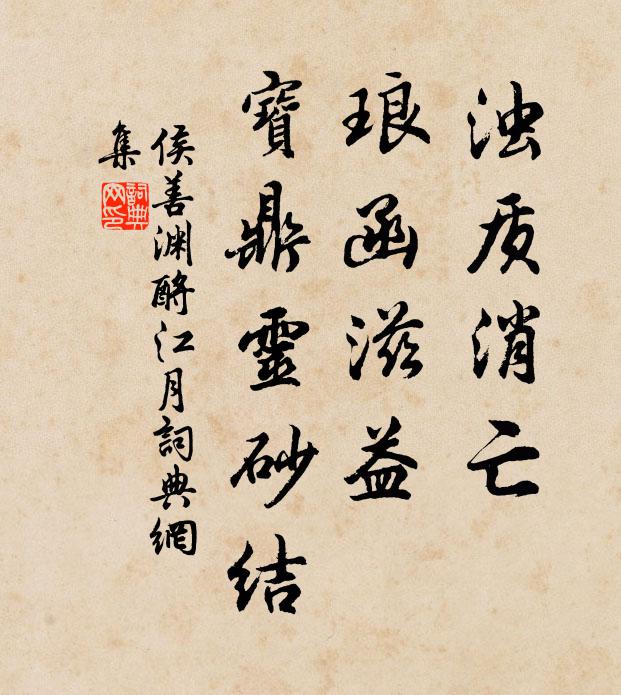 浊质消亡
琅函滋益
寶鼎靈砂結
侯善渊酹江月詞典網
集
詞典网印